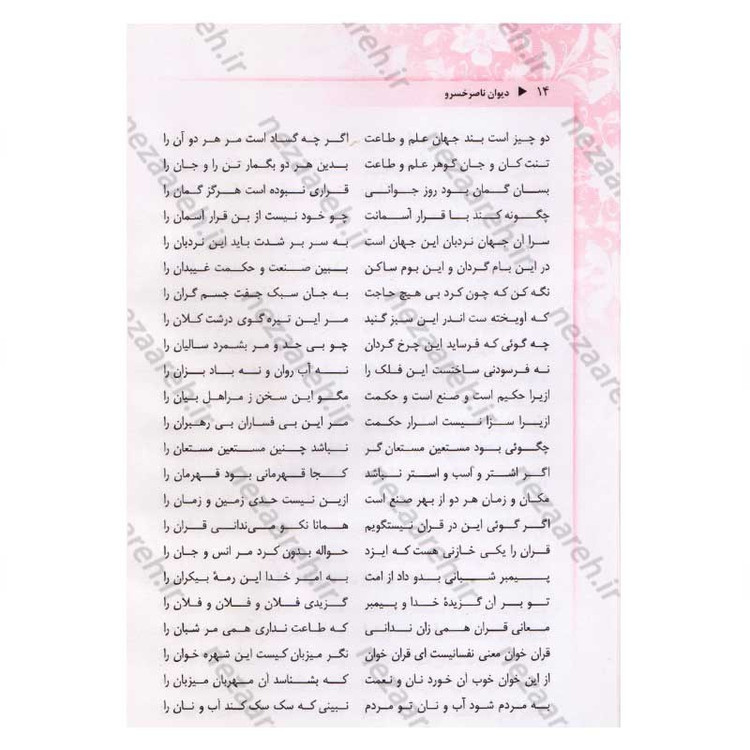 ۱۴ ◀ دیوان ناصرخسرو
دو چیز است بند جهان علم و طاعت اگر چه گساد است مر هر دو آن را
تنت کان و جان گوهر علم و طاعت بدین هر دو بگمار تن را و جان را
بسان گمان بود روز جوانی قراری نبوده است هرگز گمان را
چگونه کند با قرار آسمانت چو خود نیست از بن قرار آسمان را
سرا آن جهان نردبان این جهان است به سر بر شدت باید این نردبان را
در این بام گردان و این بوم ساکن ببین صنعت و حکمت غیبدان را
نگه کن که چون کرد بی هیچ حاجت به جان سبک جفت جسم گران را
که آویخته ست اندر این سبز گنبد مر این تیره گوی درشت کلان را
چه گوئی که فرساید این چرخ گردان چو بی حد و مر بشمرد سالیان را
نه فرسودنی ساختست این فلک را نه آب روان و نه باد بزان را
ازیرا حکیم است و صنع است و حکمت مگو این سخن ز مراهل بیان را
ازیرا سزا نیست اسرار حکمت مر این بی فساران بی رهبران را
چگوئی بود مستعین مستعان گر نباشد چنین مستعین مستعان را
اگر اشتر و اسب و استر نباشد کجا قهرمانی بود قهرمان را
مکان و زمان هر دو از بهر صنع است ازین نیست حدی زمین و زمان را
اگر گوئی این در قران نیستگویم همانا نکو می‌ندانی قران را
قران را یکی خازنی هست که ایزد حواله بدون کرد مر انس و جان را
پیمبر شبانی بدو داد از امت به امر خدا این رمهٔ بیکران را
تو بر آن گزیدهٔ خدا و پیمبر گزیدی فلان و فلان و فلان را
معانی قران همی زان ندانی که طاعت نداری همی مر شبان را
قران خوان معنی نفسانیست ای قران خوان نگر میزبان کیست این شهره خوان را
از این خوان خوب آن خورد نان و نعمت که بشناسد آن مهربان میزبان را
به مردم شود آب و نان تو مردم نبینی که سک سک کند آب و نان را
nezaareh.ir